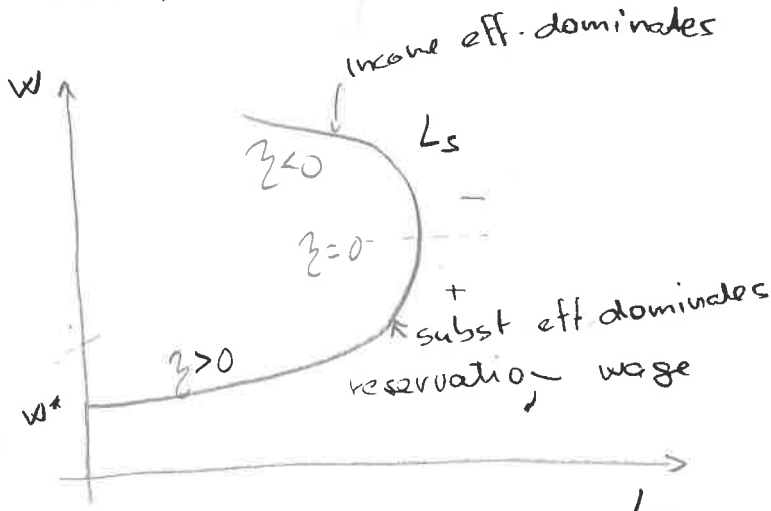 income eff. dominates
W
Ls
η<0
—
η=0
+
subst eff dominates
η>0
reservation wage
w*
L